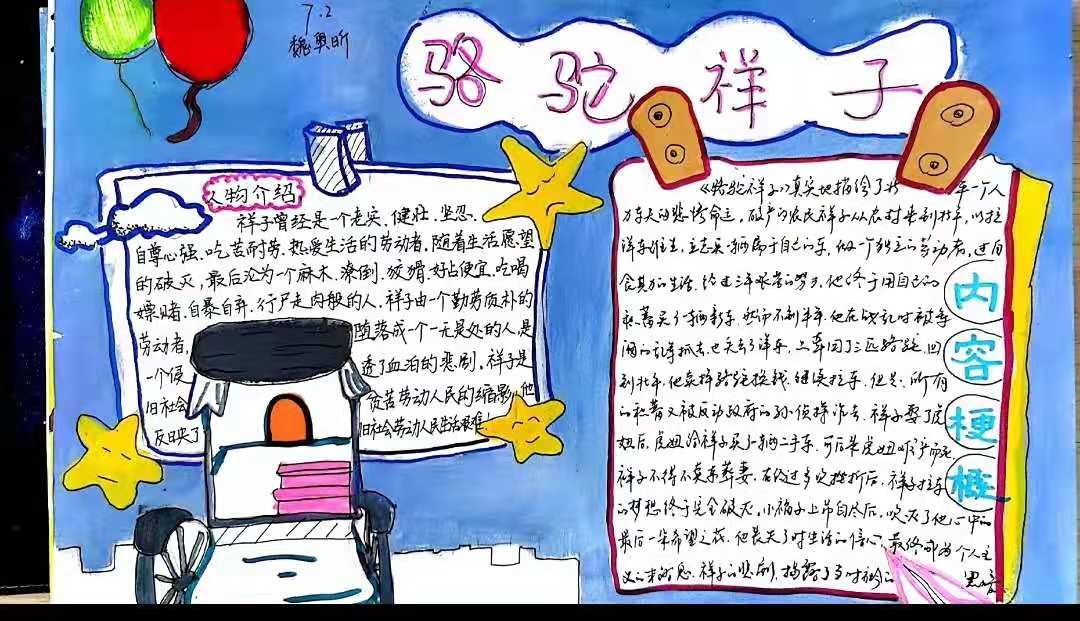 7.2
魏奥昕
骆驼祥子
人物介绍
祥子曾经是一个老实、健壮、坚忍、
自尊心强、吃苦耐劳、热爱生活的劳动者,随着生活愿望
的破灭,最后沦为一个麻木、潦倒、狡猾、好占便宜、吃喝
嫖赌、自暴自弃、行尸走肉般的人。祥子由一个勤劳质朴的
劳动者, 堕落成一个一无是处的人是
一个 透了血泪的悲剧。祥子是
旧社会 贫苦劳动人民的缩影,他
反映了 旧社会劳动人民生活艰难
内容梗概
《骆驼祥子》真实地描绘了 一个人
力车夫的悲惨命运。破产的农民祥子从农村来到北平,以拉
洋车维生,立志买一辆属于自己的车,做一个独立的劳动者,过自
食其力的生活。经过三年艰苦的努力,他终于用自己的
积蓄买了一辆新车。然而不到半年,他在战乱时被军
阀的乱军抓去,也失去了洋车,只牵回了三匹骆驼。回
到北平,他卖掉骆驼换钱,继续拉车。但是,所有
的积蓄又被反动政府的孙侦探诈去。祥子娶了虎
妞后,虎妞给祥子买了一辆二手车,可后来虎妞难产而死,
祥子不得不卖车葬妻。在经过多次挫折后,祥子拉车
的梦想终于完全破灭。小福子上吊自尽后,吹灭了他心中的
最后一朵希望之花,他丧失了对生活的信心,最终成为个人主
义的末路鬼。祥子的悲剧,揭露了当时社会的 黑暗